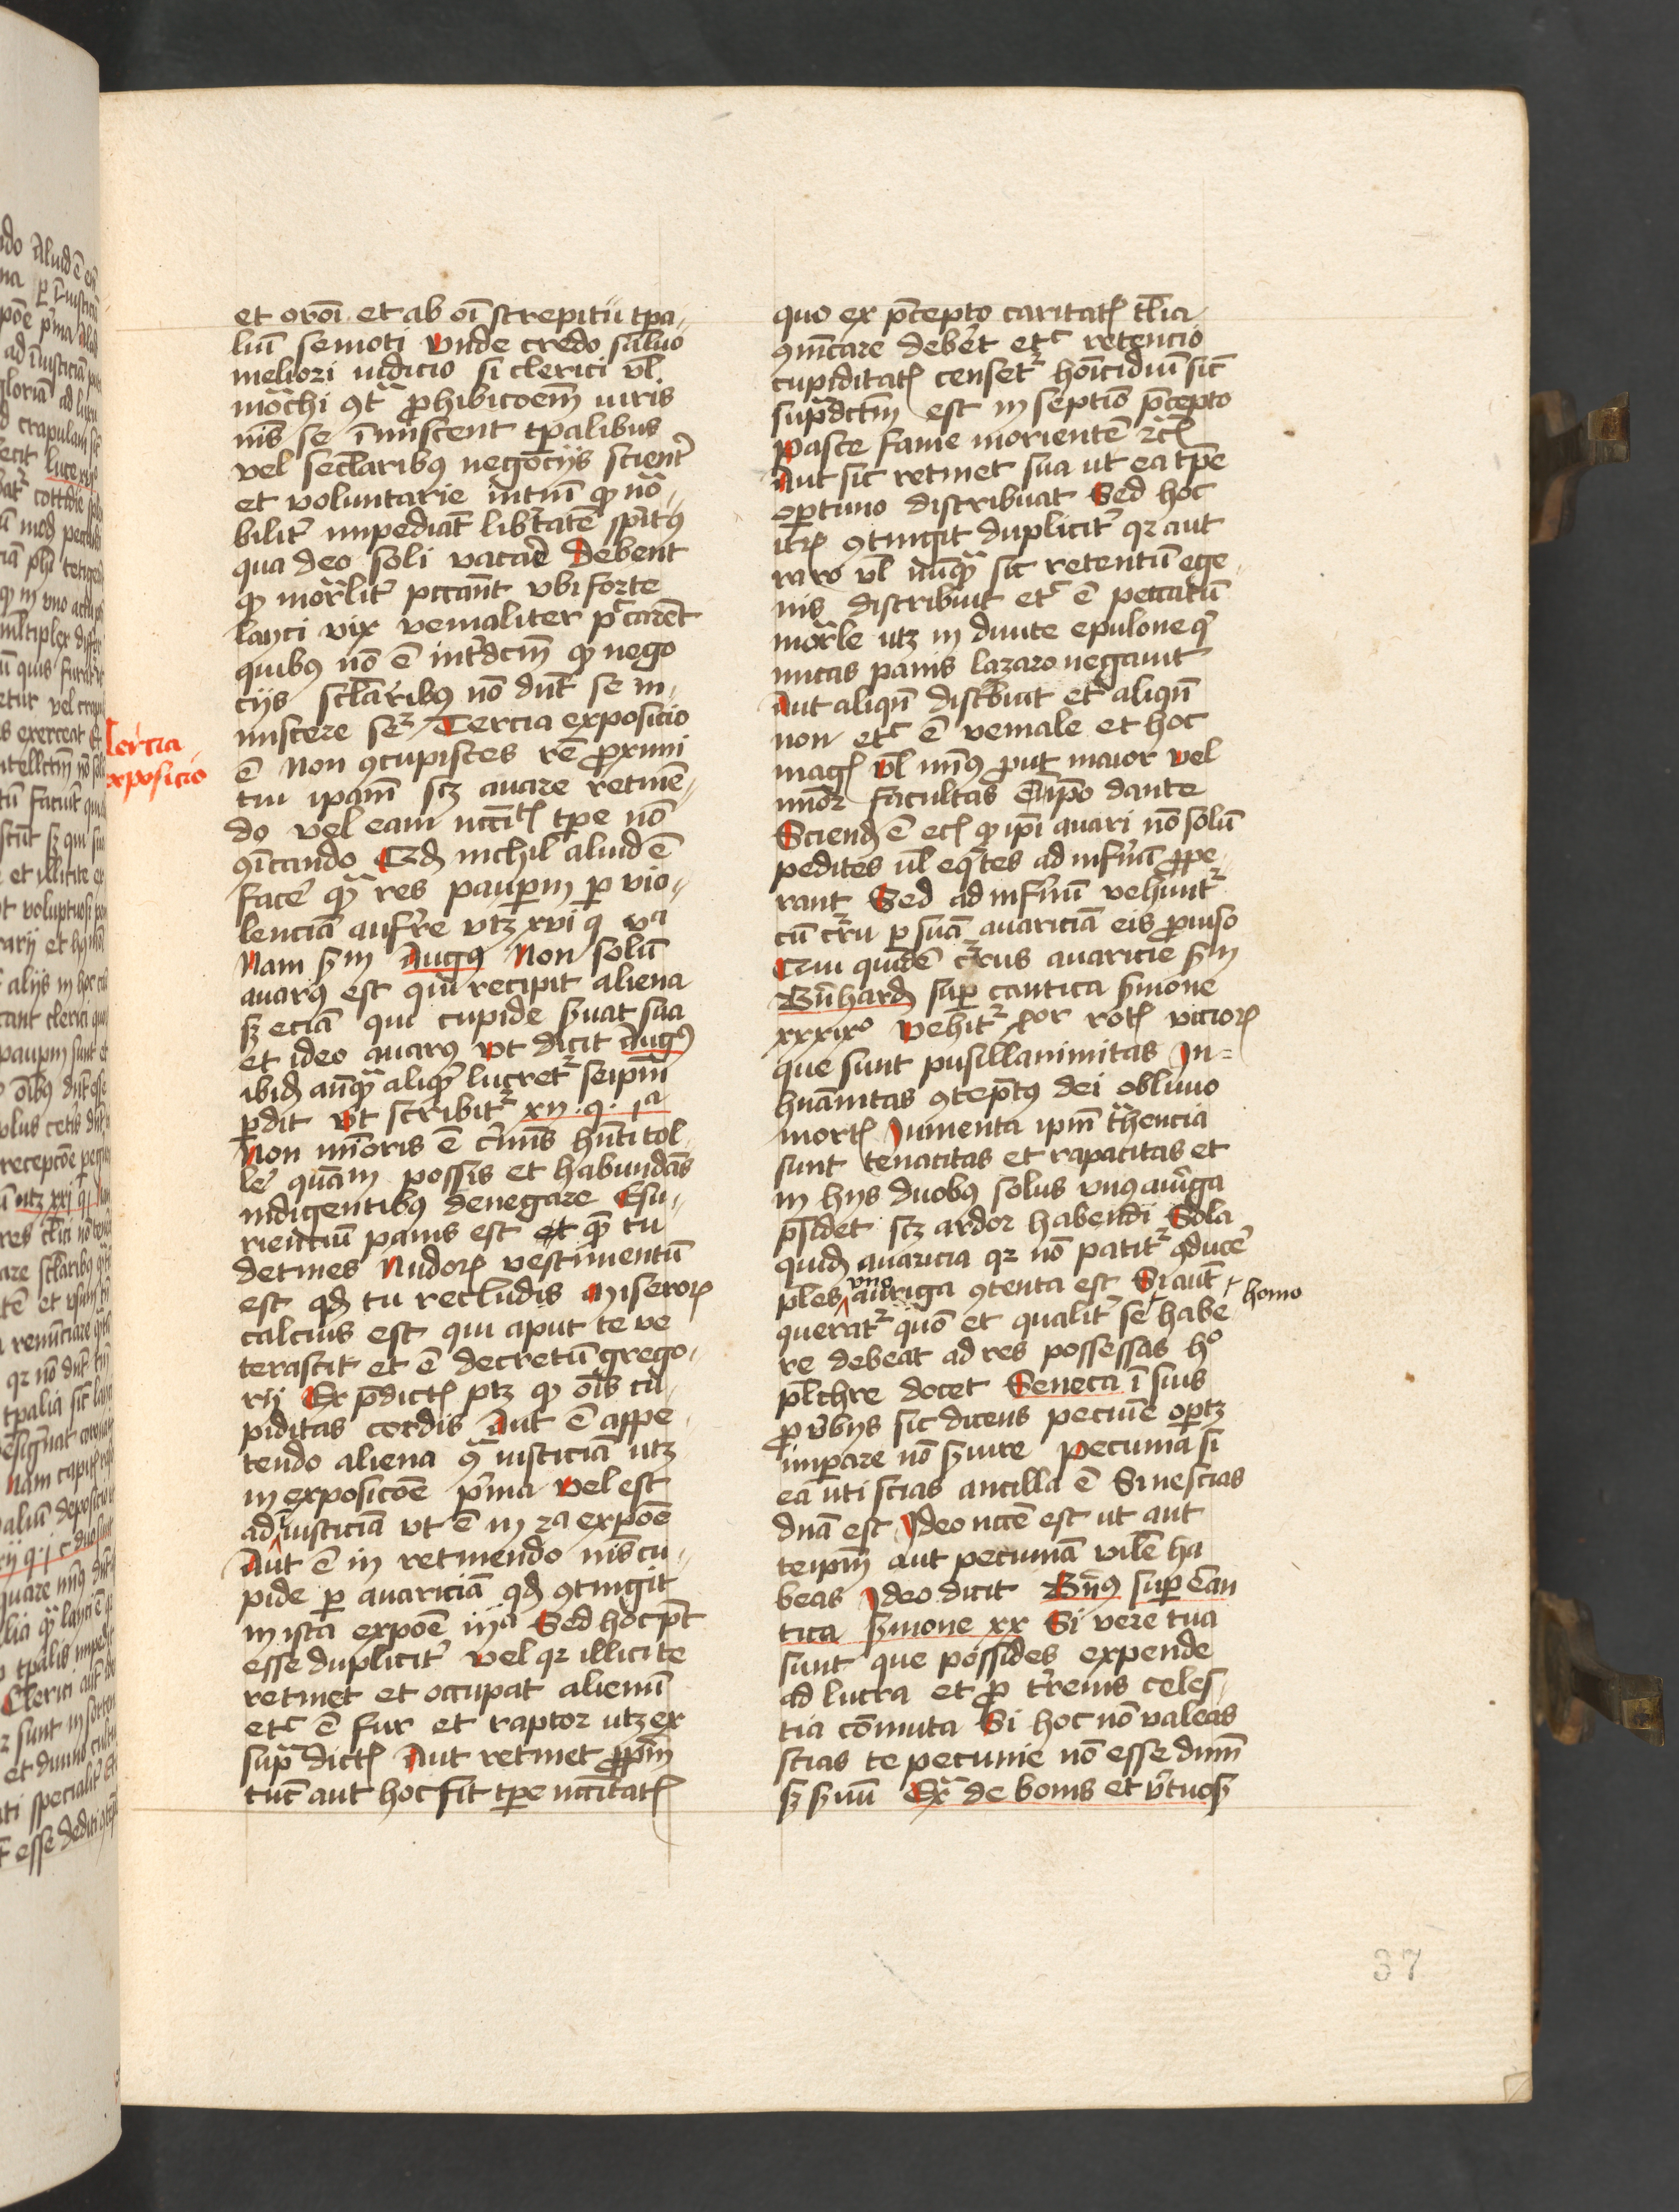 et oro̅i et ab oi̅ strepitu tpa-
liu̅ semoti Vnde credo saluo
meliori iudicio si clerici vl̅
mo̅chi ɔt̅ ꝓhibico̅em̅ iuris
nis̅ se i̅miscent tp̅alibus
vel secl̅aribꝰ negocijs scient̅
et voluntarie in tm̅ qꝫ no̅-
bilit̅ impedia̅t lib̅tate̅ sp̅itꝰ
qua deo soli vacare Debent
qꝫ mo̅rlit̅ pcca̅nt vbi forte
layci vix venialiter pᶜcare̅t
quibꝰ no̅ e̅ int̅dcm̅ qꝫ nego
cijs scl̅aribꝰ no̅ dn̅t se in-
miscere Tercia exposicio
e̅ Non ɔcupisces re̅ ꝓximi
tui ipam̅ scꝫ auare retine̅-
do vel eam nccitꝭ tp̅e no̅
ɔi̅cando Qd̅ nichil aliud e̅
face̅ qꝫ res paup̅m p̲ vio-
lencia̅ aufr̅e vtꝫ xvi q va
Nam sm̅ Augꝰ Non solu̅
auarꝰ est qui recipit aliena
sꝫ ecia̅ qui cupide s̅uat sua
et ideo auarꝰ Vt dicit Augꝰ
ibid̅ an̅qꝫ aliqd̅ lucretʳ seipm̅
p̲dit Vt scribitʳ xij · q · ia
Non mi̅oris e̅ c̅mis hn̅ti tol-
le̅ qua̅m possis et habunda̅s
indigentibꝰ denegare Esu-
rientiu̅ panis est qꝫ tu
detines Nudorꝭ vestimentu̅
est qd̅ tu recludis Miserorꝭ
calcius est qui aput te ve
terascit et e̅ decretu̅ grego-
rij Ex p̅dictꝭ ptꝫ qꝫ o̅is cu-
piditas cordis Aut e̅ appe-
tendo aliena ɔ̅ iusticia̅ utꝫ
in exposico̅e p̅ma vel est
ad iusticia̅ vt e̅ in 2a expo̅e
Aut e̅ in retinendo nis̅ cu-
pide p̲ auaricia̅ qd̅ ɔtingit
in ista expo̅e iija Sed hoc pt̅
esse duplicit̅ vel qꝛ illicite
retinet et occupat alienu̅
etᶜ e̅ fur et raptor utꝫ ex
sup̅ dictꝭ Aut retinet ꝓp̅m
tu̅c aut hoc fit tp̅e nccitatꝭ
Tercia
exposicio
quo ex p̅cepto caritatꝭ tl̅ia
ɔi̅care debe̅t etᶜ retencio
cupiditatꝭ censetʳ ho̅icidiu̅ sic̅
sup̅dctm̅ est in septi̅o p̅cepto
Pasce fame moriente̅ 2cꝭ
Aut sic retinet sua ut ea tp̅e
op̲tuno distribuat Sed hoc
itꝭ ɔtingit duplicit̅ qꝛ aut
raro vl̅ nu̅qꝫ sic retentu̅ ege-
nis distribuit etᶜ e̅ peccatu̅
mor̅le utꝫ in diuite epulone qi
micas panis lazaro negauit
Aut aliqn̅ distbuit etᶜ aliqn̅
non etᶜ e̅ veniale et hoc
magꝭ Vl̅ minꝰ ꝓut maior vel
mi̅or facultas e̅ ipo̅ dante
Sciend̅ e̅ ecꝭ qꝫ ipi̅ auari no̅ solu̅
pedites vl̅ eq̅tes ad infrn̅a̅ ꝓpe-
rant Sed ad infrn̅u̅ vehu̅ntʳ
cu̅ cr̅ru p̲ sua̅ auaricia̅ eis ꝓuiso
Cui quide̅ cr̅rus auaricie sm̅
Bn̅hard̅ sup̲ cantica s̅mone
xxxixo Vehitʳ iiijor rotꝭ viciorꝭ
que sunt pusillanimitas In=
hua̅nitas ɔtep̅tꝰ dei obliuio
mortꝭ Iumenta ipm̅ t̅hencia
sunt tenacitas et rapacitas et
in hijs duobꝰ solus vnꝰ auriga
p̅sidet scꝫ ardor habendi Sola
quid̅ auaricia qꝛ no̅ patitʳ ɔduce̅
ples̅ vno auriga ɔtenta est Si aut̅
queratʳ quo̅ et qualit̅ se habe homo
re debeat ad res possessas ho
pl̅chre docet Seneca i̅ suis
ꝓu̅bijs sic dicens pecuie̅ op̲tꝫ
imp̲are no̅ s̅uire Pecunia si
ea̅ uti scias ancilla e̅ Si nescias
dn̅a est Ideo ncce̅ est ut aut
teipm̅ aut pecunia̅ vile̅ ha
beas Ideo dicit Bn̅ꝰ sup̲ can
tica s̅mone xx Si vere tua
sunt que possides expende
ad lucra et ꝓ tr̅renis celes-
tia co̅muta Si hoc no̅ valeas
scias te pecunie no̅ esse dnm̅
sꝫ s̅uu̅ Ex̅ de bonis et v̅tuosꝭ
37